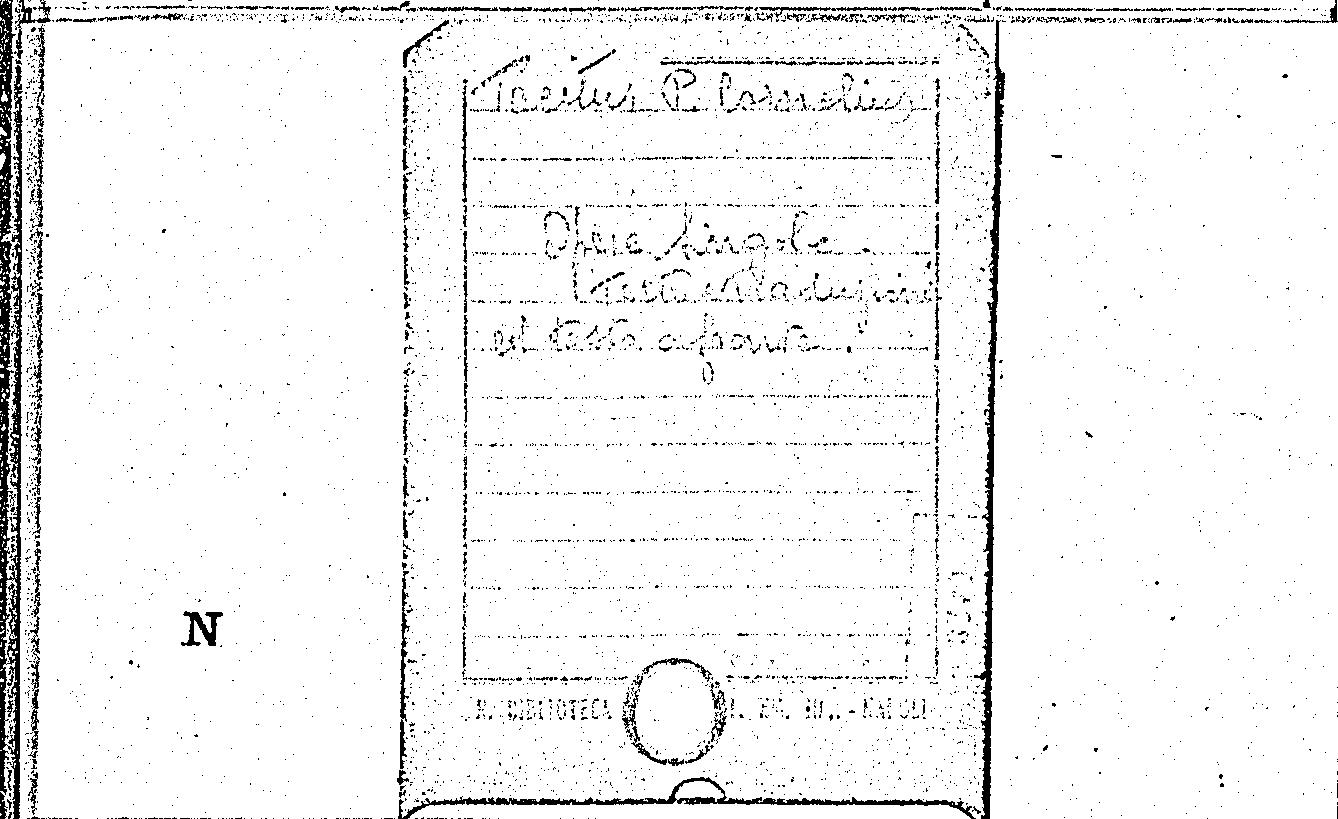 Tacitus P. Cornelius
Opere singole.
Testi e traduzioni
col testo a fronte.
N
R. BIBLIOTECA NAPOLI